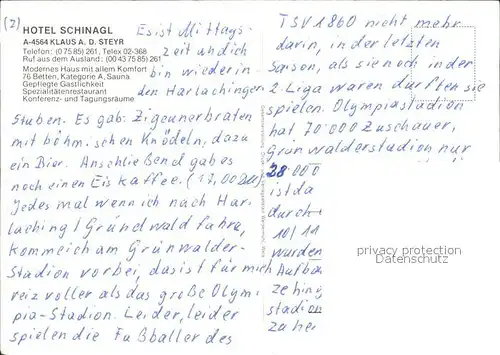 (2)
HOTEL SCHINAGL
A-4564 KLAUS A. D. STEYR
Telefon: (0 75 85) 261, Telex 02-368
Ruf aus dem Ausland: (00 43 75 85) 261
Modernes Haus mit allem Komfort
76 Betten, Kategorie A, Sauna
Gepflegte Gastlichkeit
Spezialitätenrestaurant
Konferenz- und Tagungsräume
Es ist Mittags-
zeit und ich
bin wieder in
den Harlachinger
Stuben. Es gab: Zigeunerbraten
mit böhm.schen Knödeln, dazu
ein Bier. Anschließend gab es
noch einen Eiskaffee. (17,00
Jedes mal wenn ich nach Har-
laching/Grünwald fahre,
komme ich am Grünwalder-
Stadion vorbei, das ist für mich
reizvoller als das große Olym-
pia-Stadion. Leider, leider
spielen die Fußballer des
TSV 1860 nicht mehr
darin, in der letzten
Saison, als sie noch in der
2. Liga waren durften sie
spielen. Olympiastadion
hat 70000 Zuschauer,
Grünwalderstadion nur
28000
ist da
durch
10/11
wurden
Aufba
ze hing
stadion
zu hei
privacy protection
Datenschutz